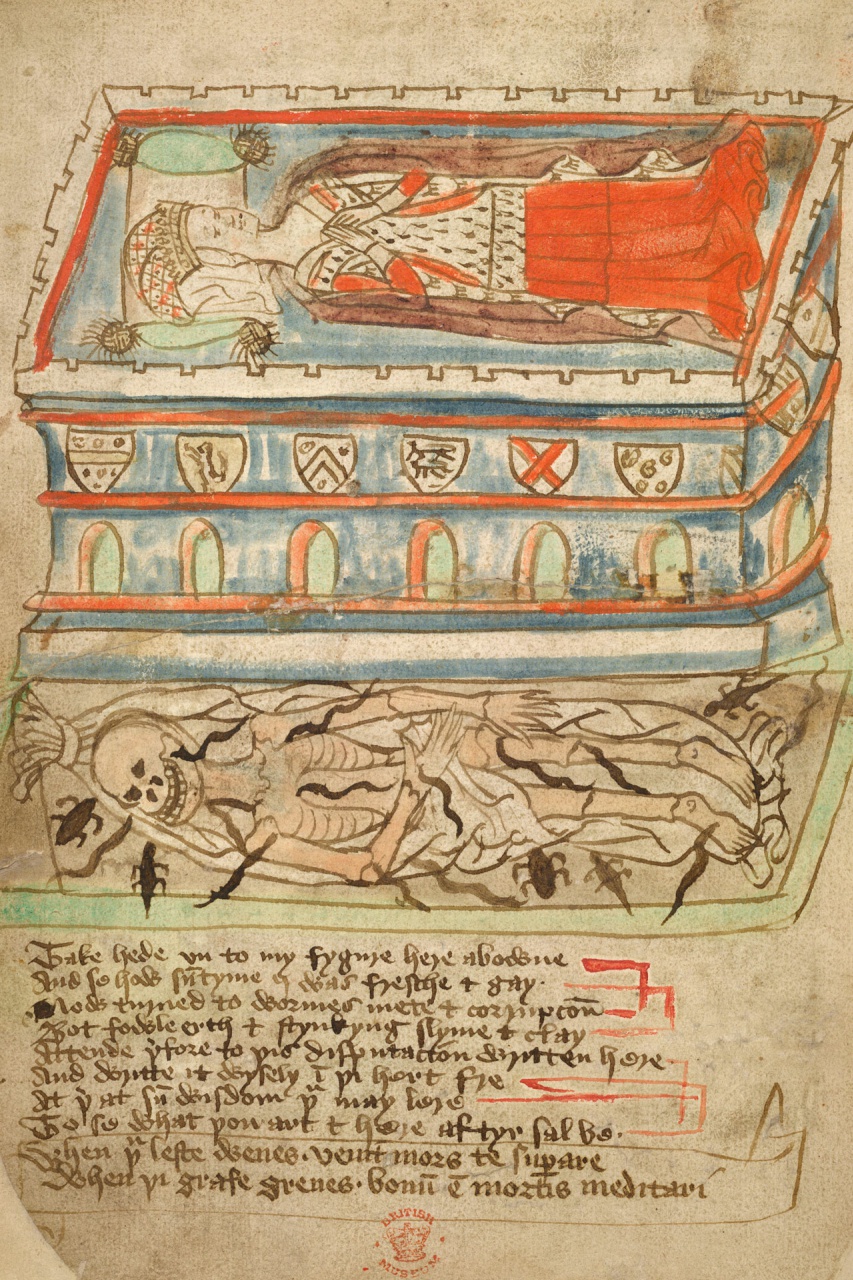 Take hede vn to my fygure here abowne
And se how sūtyme I was fresche & gay
Now turned to wormes mete & corrupcoū
Bot fowle erth & stynkyng slyme & clay
Attende þfore to þis disputacioū wrytten here
And wrytte it wysely ī þi hert fre
At þ at sū wisdom þu may lere
To se what þou art & here aftyr sal be.
When þu leste wenes. venit mors te supare
When þi grafe grenes. bonū ē mortis meditari
BRITISH
MUSEUM